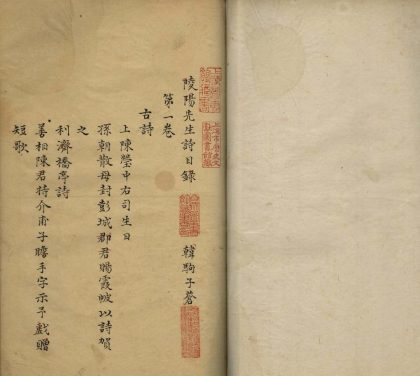 陵陽先生詩目錄 韓駒子蒼
第一卷
古詩
上陳瑩中右司生日
孫朝散母封彭城郡君賜霞帔以詩賀
之
利濟橋亭詩
善相陳君持介甫子瞻手字示予戲贈
短歌